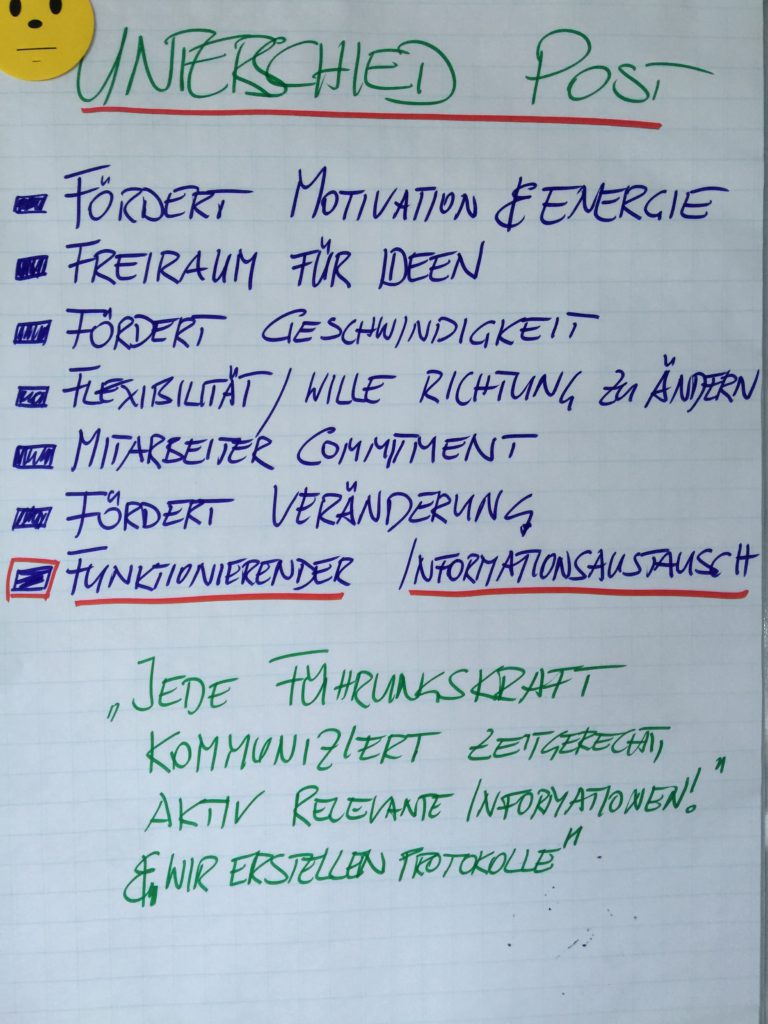 UNTERSCHIED POST
FÖRDERT MOTIVATION & ENERGIE
FREIRAUM FÜR IDEEN
FÖRDERT GESCHWINDIGKEIT
FLEXIBILITÄT / WILLE RICHTUNG ZU ÄNDERN
MITARBEITER COMMITMENT
FÖRDERT VERÄNDERUNG
FUNKTIONIERENDER INFORMATIONSAUSTAUSCH
„JEDE FÜHRUNGSKRAFT
KOMMUNIZIERT ZEITGERECHT,
AKTIV RELEVANTE INFORMATIONEN!"
& „WIR ERSTELLEN PROTOKOLLE"